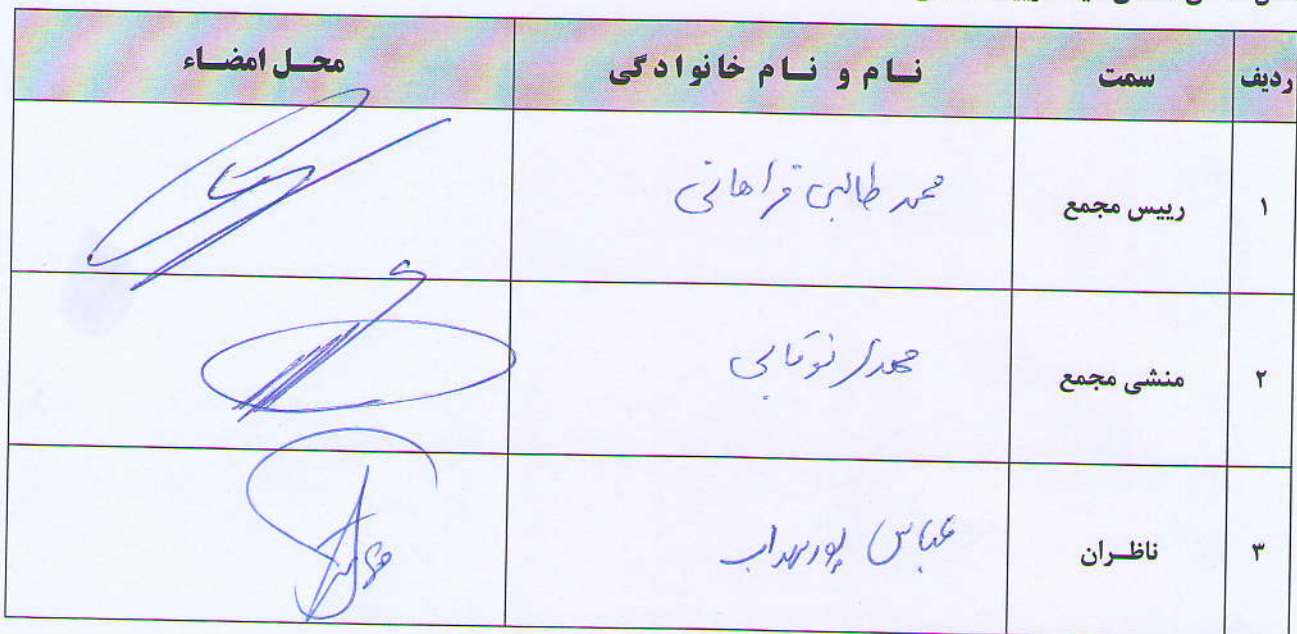 ردیف سمت نام و نام خانوادگی محل امضاء
۱ رییس مجمع محمد طالبی فراهانی
۲ منشی مجمع مهدی نوقابی
۳ ناظران عباس پورسهراب